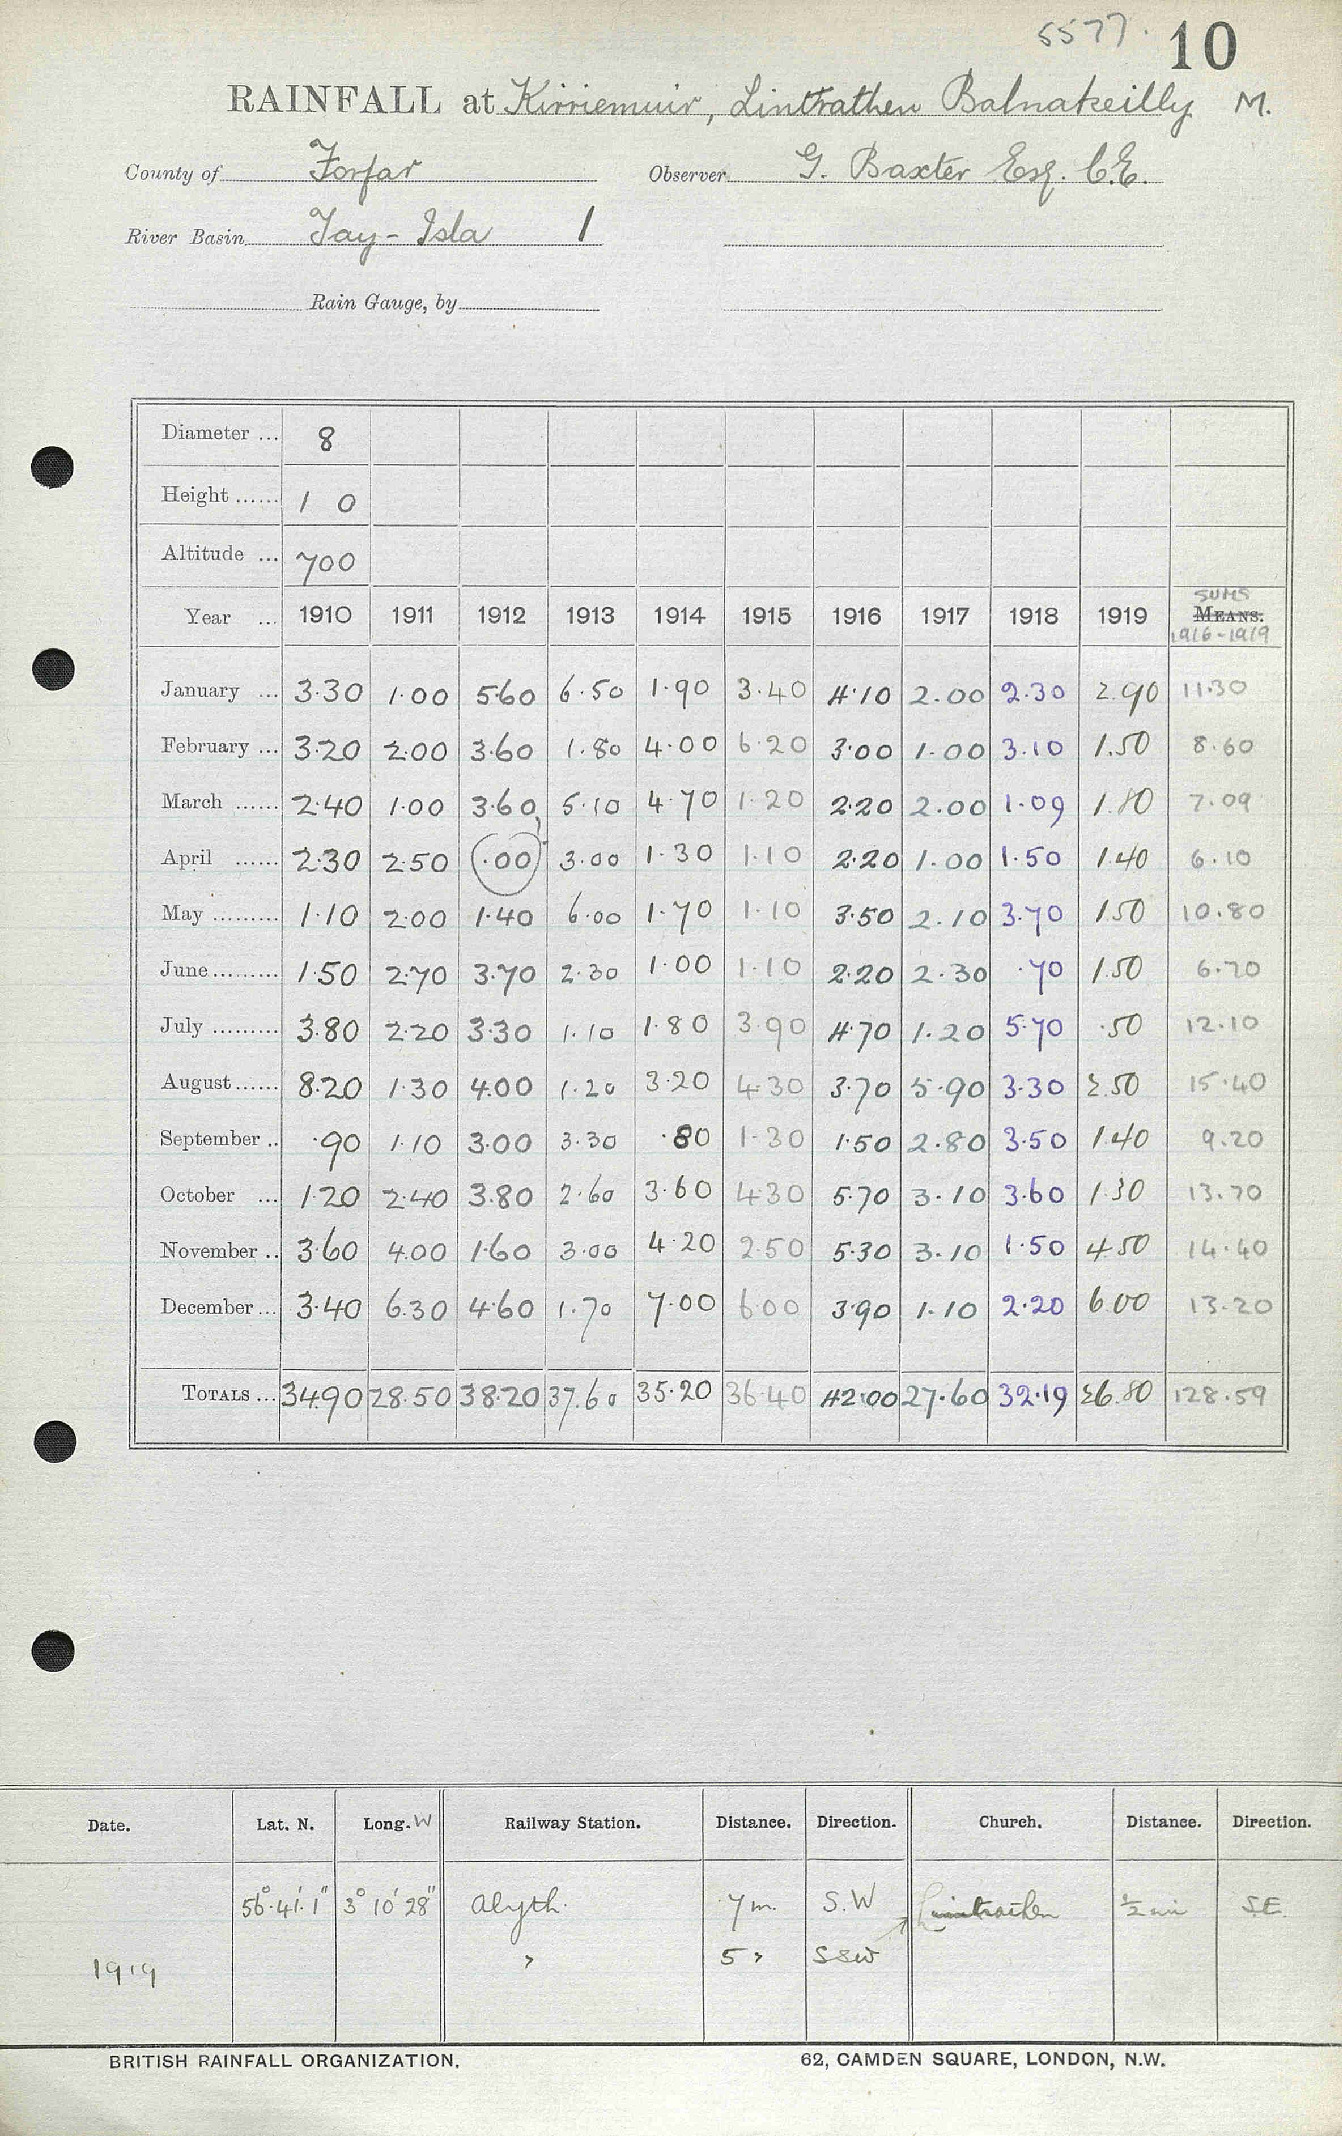 5577. 10
RAINFALL at Kirriemuir, Lintrathen Balnakeilly M.
County of Forfar Observer G. Baxter Esq. C.E.
River Basin Tay - Isla 1
Rain Gauge, by
Diameter ... 8
Height ...... 1 0
Altitude ... 700
SUMS
Year ... 1910 1911 1912 1913 1914 1915 1916 1917 1918 1919 MEANS.
1916-1919
January ... 3.30 1.00 5.60 6.50 1.90 3.40 4.10 2.00 2.30 2.90 11.30
February ... 3.20 2.00 3.60 1.80 4.00 6.20 3.00 1.00 3.10 1.50 8.60
March ...... 2.40 1.00 3.60 5.10 4.70 1.20 2.20 2.00 1.09 1.80 7.09
April ...... 2.30 2.50 .00 3.00 1.30 1.10 2.20 1.00 1.50 1.40 6.10
May ......... 1.10 2.00 1.40 6.00 1.70 1.10 3.50 2.10 3.70 1.50 10.80
June ......... 1.50 2.70 3.70 2.30 1.00 1.10 2.20 2.30 .70 1.50 6.70
July ......... 3.80 2.20 3.30 1.10 1.80 3.90 4.70 1.20 5.70 .50 12.10
August ...... 8.20 1.30 4.00 1.20 3.20 4.30 3.70 5.90 3.30 2.50 15.40
September .. .90 1.10 3.00 3.30 .80 1.30 1.50 2.80 3.50 1.40 9.20
October ... 1.20 2.40 3.80 2.60 3.60 4.30 5.70 3.10 3.60 1.30 13.70
November .. 3.60 4.00 1.60 3.00 4.20 2.50 5.30 3.10 1.50 4.50 14.40
December ... 3.40 6.30 4.60 1.70 7.00 6.00 3.90 1.10 2.20 6.00 13.20
TOTALS ... 34.90 28.50 38.20 37.60 35.20 36.40 42.00 27.60 32.19 26.80 128.59
Date. Lat. N. Long. W Railway Station. Distance. Direction. Church. Distance. Direction.
56° 41' 1" 3° 10' 28" Alyth. 7 m. S.W Lintrathen ½ mi S.E.
1919 " 5 " SSW
BRITISH RAINFALL ORGANIZATION. 62, CAMDEN SQUARE, LONDON, N.W.